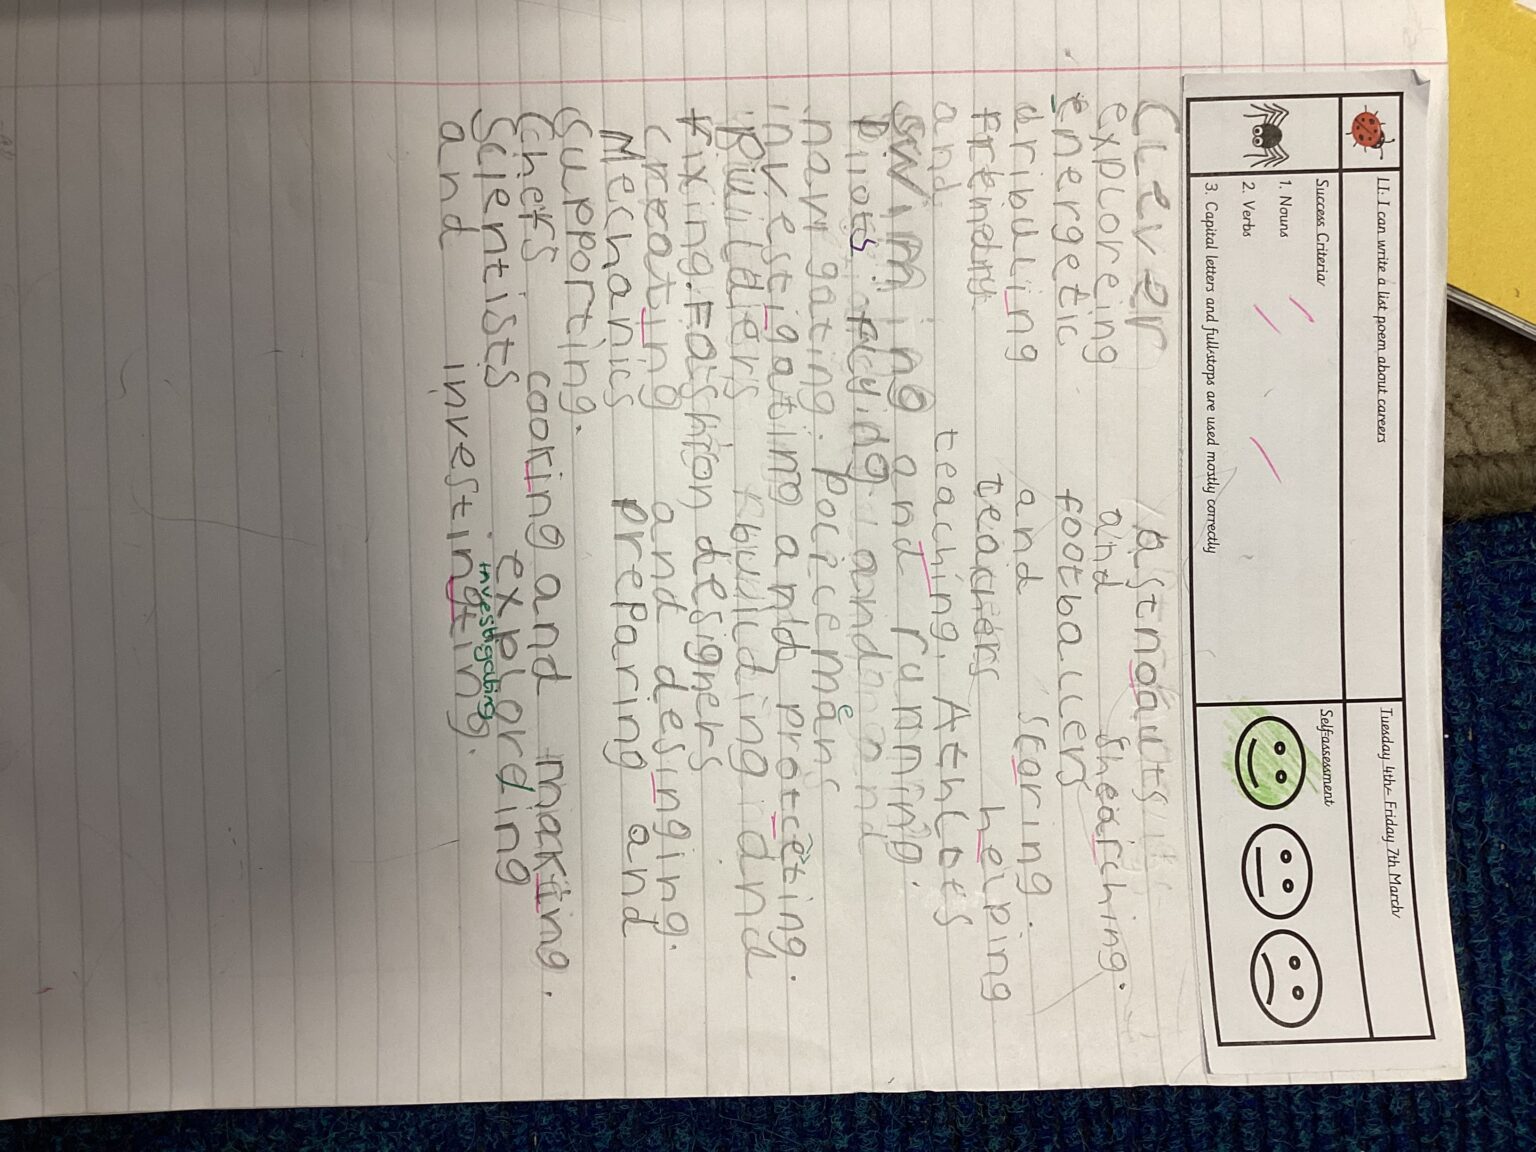 LI: I can write a list poem about careers
Tuesday 4th - Friday 7th March
Success Criteria
1. Nouns
2. Verbs
3. Capital letters and full stops are used mostly correctly
Self-assessment
Clever astnoauts
exploreing and shearching.
energetic footballers
dribuling and scoring.
Frendly teachers helping
and teaching. Athlots
swiming and running.
Pilots flyidg and
navigating. Policemans
e
investigating and protceting.
Builders buulding and
Fixing. Fashion designers
creating and desinging.
Mechanics preparing and
supporting.
Chefs cooking and making.
Scientists exploreing
investigating
and investingting.